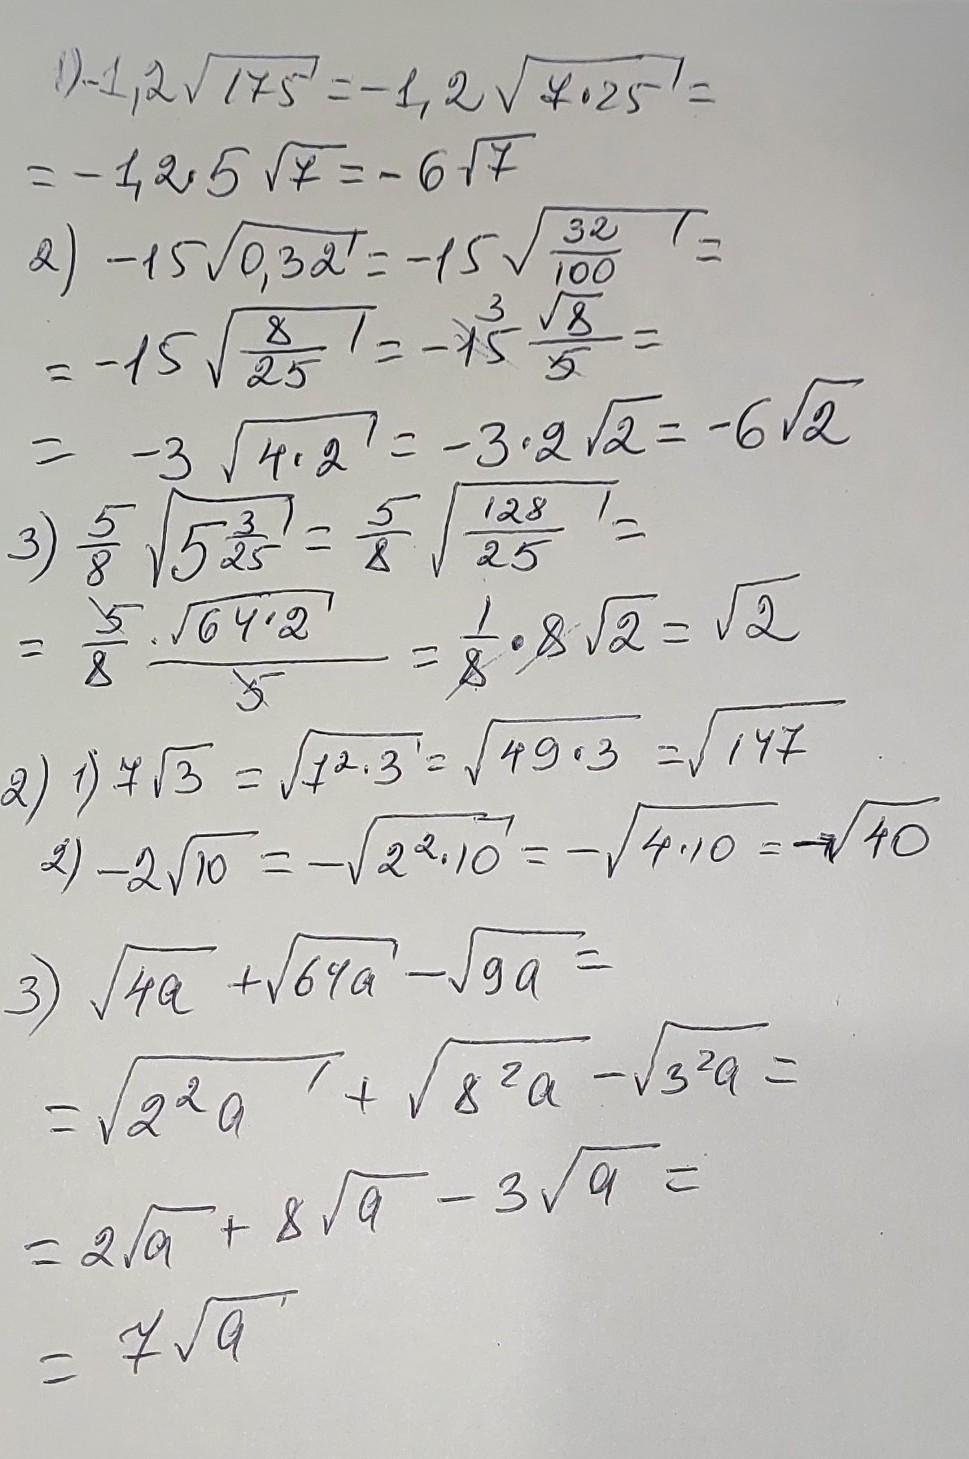 1) -1,2√175 = -1,2√7·25 =
= -1,2·5√7 = -6√7
2) -15√0,32 = -15√32/100 =
= -15√8/25 = -15 3 √8/5 =
= -3√4·2 = -3·2√2 = -6√2
3) 5/8 √5 3/25 = 5/8 √128/25 =
= 5/8 · √64·2/5 = 1/8 · 8√2 = √2
2) 1) 7√3 = √7²·3 = √49·3 = √147
2) -2√10 = -√2²·10 = -√4·10 = -√40
3) √4a + √64a - √9a =
= √2²a + √8²a - √3²a =
= 2√a + 8√a - 3√a =
= 7√a